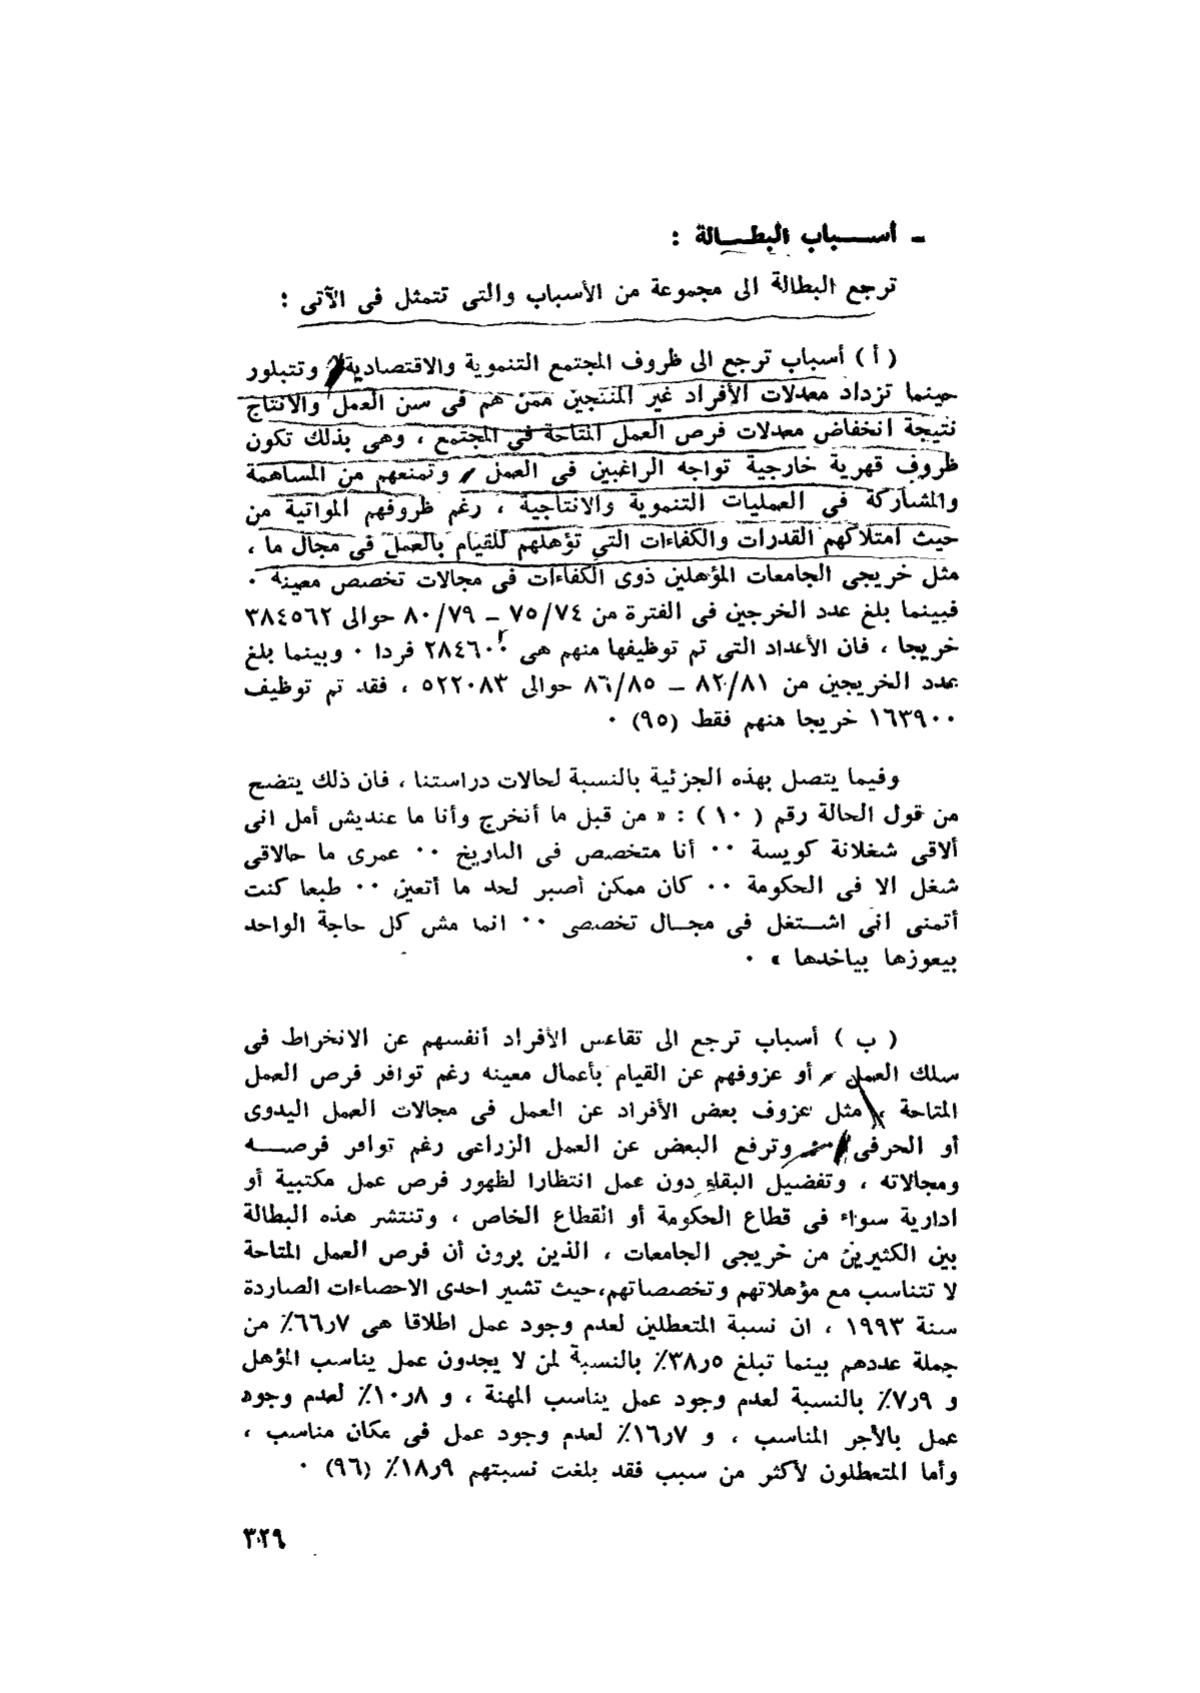 ـ أســباب البطــالة :
ترجع البطالة الى مجموعة من الأسباب والتى تتمثل فى الآتى :
( أ ) أسباب ترجع الى ظروف المجتمع التنموية والاقتصادية ، وتتبلور
حينما تزداد معدلات الأفراد غير المنتجين ممن هم فى سن العمل والانتاج
نتيجة انخفاض معدلات فرص العمل المتاحة في المجتمع ، وهى بذلك تكون
ظروف قهرية خارجية تواجه الراغبين فى العمل ، وتمنعهم من المساهمة
والمشاركة فى العمليات التنموية والانتاجية ، رغم ظروفهم المواتية من
حيث امتلاكهم القدرات والكفاءات التي تؤهلهم للقيام بالعمل فى مجال ما ،
مثل خريجى الجامعات المؤهلين ذوى الكفاءات فى مجالات تخصص معينة ٠
فبينما بلغ عدد الخرجين فى الفترة من ٧٥/٧٤ ــ ٨٠/٧٩ حوالى ٣٨٤٥٦٢
خريجا ، فان الأعداد التى تم توظيفها منهم هى ٢٨٤٦٠٠ فردا ٠ وبينما بلغ
عدد الخريجين من ٨٢/٨١ ــ ٨٦/٨٥ حوالى ٥٢٢٠٨٣ ، فقد تم توظيف
١٦٣٩٠٠ خريجا منهم فقط (٩٥) ٠
وفيما يتصل بهذه الجزئية بالنسبة لحالات دراستنا ، فان ذلك يتضح
من قول الحالة رقم ( ١٠ ) : « من قبل ما أتخرج وأنا ما عنديش أمل انى
ألاقى شغلانة كويسة ٠٠ أنا متخصص فى التاريخ ٠٠ عمرى ما حالاقى
شغل الا فى الحكومة ٠٠ كان ممكن أصبر لحد ما أتعين ٠٠ طبعا كنت
أتمنى انى اشــتغل فى مجــال تخصصى ٠٠ انما مش كل حاجة الواحد
بيعوزها بياخدها » ٠
( ب ) أسباب ترجع الى تقاعس الأفراد أنفسهم عن الانخراط فى
سلك العمل ، أو عزوفهم عن القيام بأعمال معينه رغم توافر فرص العمل
المتاحة ، مثل عزوف بعض الأفراد عن العمل فى مجالات العمل اليدوى
أو الحرفى ، وترفع البعض عن العمل الزراعى رغم توافر فرصــه
ومجالاته ، وتفضيل البقاء دون عمل انتظارا لظهور فرص عمل مكتبية أو
ادارية سواء فى قطاع الحكومة أو القطاع الخاص ، وتنتشر هذه البطالة
بين الكثيرين من خريجى الجامعات ، الذين يرون أن فرص العمل المتاحة
لا تتناسب مع مؤهلاتهم وتخصصاتهم،حيث تشير احدى الاحصاءات الصاردة
سنة ١٩٩٣ ، ان نسبة المتعطلين لعدم وجود عمل اطلاقا هى ٦٦٫٧٪ من
جملة عددهم بينما تبلغ ٣٨٫٥٪ بالنسبة لمن لا يجدون عمل يناسب المؤهل
و ٧٫٩٪ بالنسبة لعدم وجود عمل يناسب المهنة ، و ١٠٫٨٪ لعدم وجود
عمل بالأجر المناسب ، و ١٦٫٧٪ لعدم وجود عمل فى مكان مناسب ،
وأما المتعطلون لأكثر من سبب فقد بلغت نسبتهم ١٨٫٩٪ (٩٦) ٠
٣٢٩